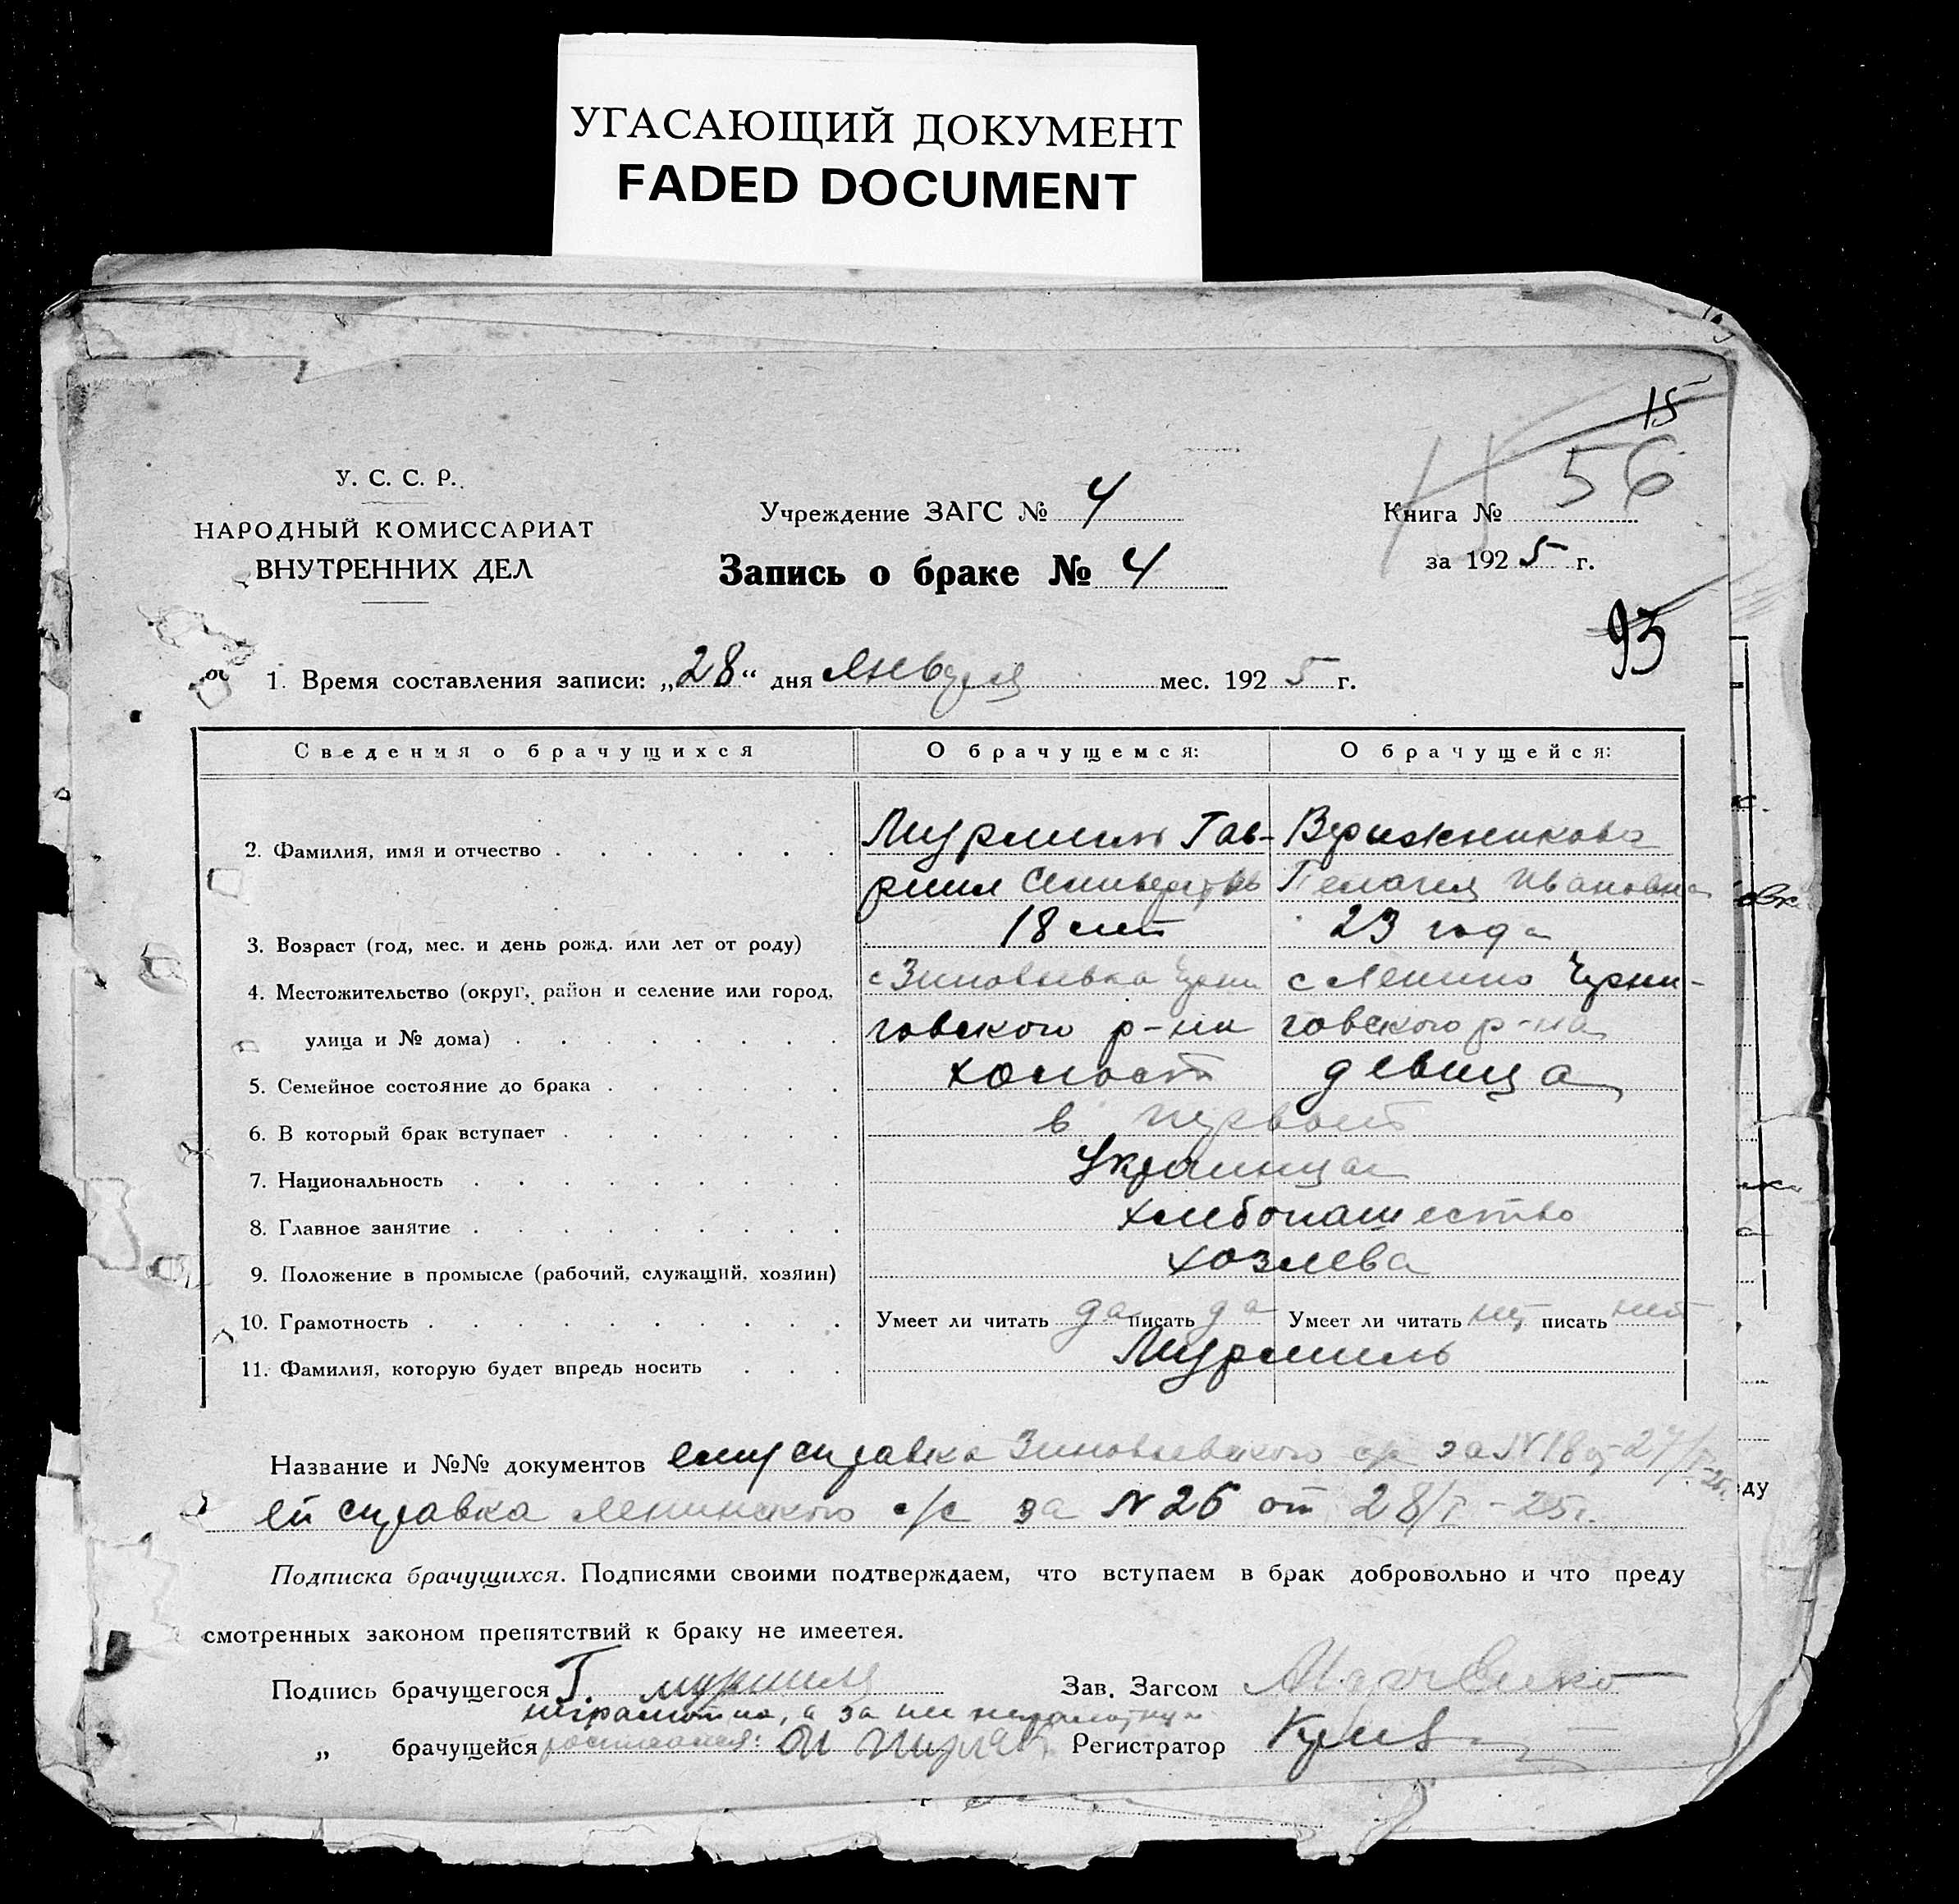 УГАСАЮЩИЙ ДОКУМЕНТ
FADED DOCUMENT
15
У. С. С. Р.
НАРОДНЫЙ КОМИССАРИАТ
ВНУТРЕННИХ ДЕЛ
Учреждение ЗАГС № 4
Запись о браке № 4
Книга № 56
за 1925 г.
93
1. Время составления записи: „28“ дня Января мес. 1925 г.
Сведения о брачущихся О брачущемся: О брачущейся:
2. Фамилия, имя и отчество Гав- 
риил Пелагея Ивановна
3. Возраст (год, мес. и день рожд. или лет от роду) 18 лет 23 года
4. Местожительство (округ, район и селение или город, с Зиновьевка Черни с Ленино Черни-
улица и № дома) говского р-на говского р-на
5. Семейное состояние до брака холост девица
6. В который брак вступает в первый
7. Национальность Украинцы
8. Главное занятие хлебопашество
9. Положение в промысле (рабочий, служащий, хозяин) хозяева
10. Грамотность Умеет ли читать да писать да Умеет ли читать нет писать нет
11. Фамилия, которую будет впредь носить
Название и №№ документов ему справка Зиновьевского с/с за N 18 от 27/I-25г.
ей справка Ленинского с/с за N 26 от 28/I-25г.
Подписка брачущихся. Подписями своими подтверждаем, что вступаем в брак добровольно и что преду
смотренных законом препятствий к браку не имеетея.
Подпись брачущегося Г. Зав. Загсом
неграмотна, а за
„ брачущейся Регистратор
ду